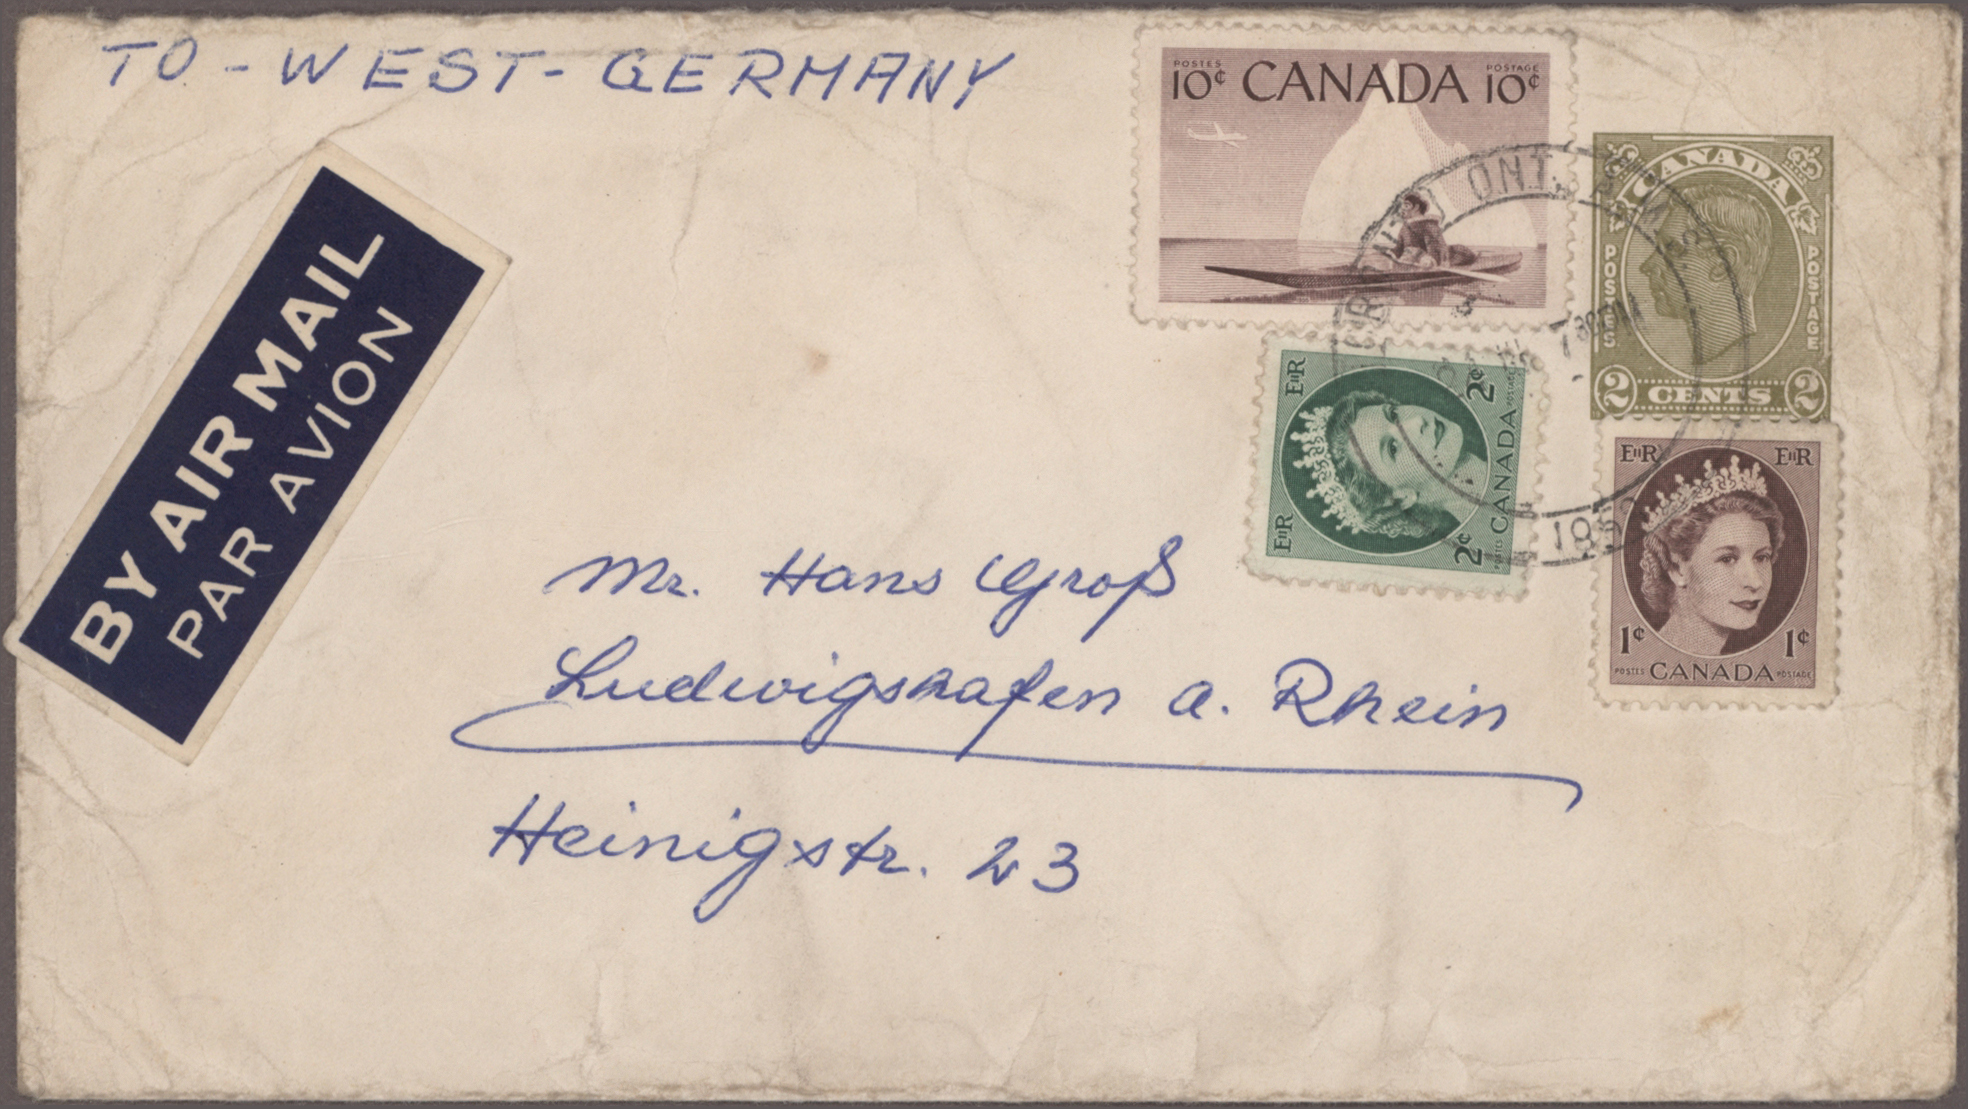 TO - WEST - GERMANY
BY AIR MAIL
PAR AVION
POSTES POSTAGE
10¢ CANADA 10¢
CANADA
POSTES POSTAGE
2 CENTS 2
EIIR EIIR
2¢ 2¢
POSTES CANADA POSTAGE
EIIR EIIR
1¢ 1¢
POSTES CANADA POSTAGE
ONT.
Mr. Hans Groß
Ludwigshafen a. Rhein
Heinigstr. 23